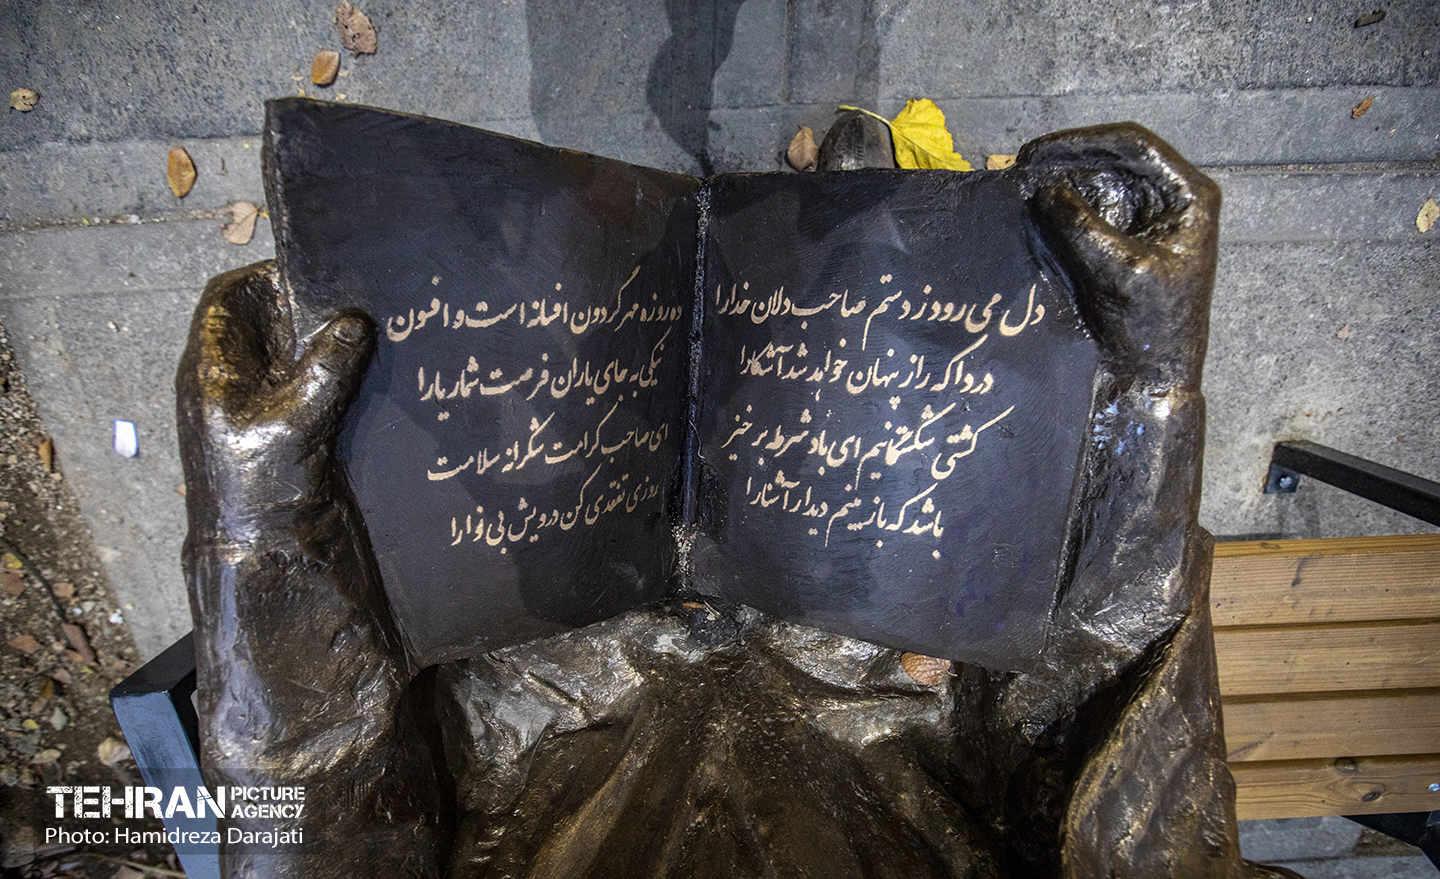 دل می رود ز دستم صاحب دلان خدارا
دردا که راز پنهان خواهد شد آشکارا
کشتی شکستگانیم ای باد شرطه برخیز
باشد که باز بینم دیدار آشنا را
ده روزه مهر گردون افسانه است و افسون
نیکی به جای یاران فرصت شمار یارا
ای صاحب کرامت شکرانه سلامت
روزی تفقدی کن درویش بی نوا را
TEHRAN PICTURE AGENCY
Photo: Hamidreza Darajati